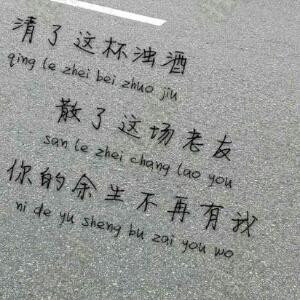 清了这杯浊酒
qing le zhei bei zhuo jiu
散了这场老友
san le zhei chang lao you
你的余生不再有我
ni de yu sheng bu zai you wo